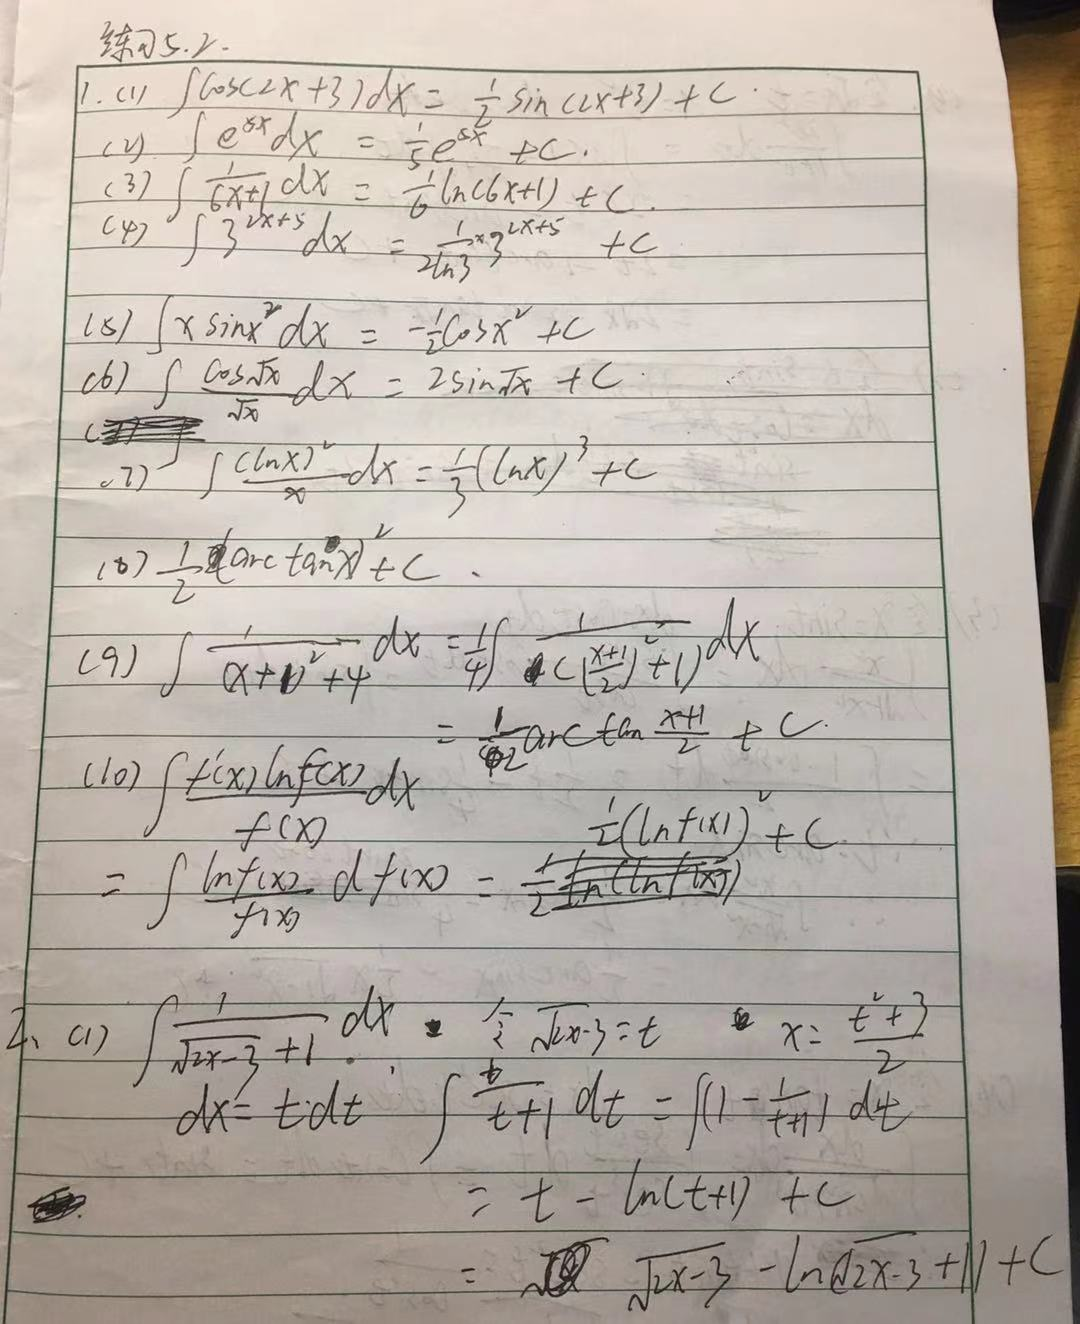 练习5.2.
1.(1) ∫cos(2x+3)dx = 1/2 sin(2x+3) + C.
(2) ∫e^{5x}dx = 1/5 e^{5x} + C.
(3) ∫1/(6x+1) dx = 1/6 ln(6x+1) + C.
(4) ∫3^{2x+5} dx = 1/(2ln3) × 3^{2x+5} + C
(5) ∫x sinx² dx = -1/2 cosx² + C
(6) ∫cos√x/√x dx = 2sin√x + C.
(7) ∫(lnx)²/x dx = 1/3 (lnx)³ + C
(8) 1/2 (arc tan x)² + C.
(9) ∫1/((x+1)²+4) dx = 1/4 ∫1/(((x+1)/2)²+1) dx
= 1/2 arc tan (x+1)/2 + C.
(10) ∫f'(x)lnf(x)/f(x) dx
1/2 (lnf(x))² + C.
= ∫lnf(x)/f(x) df(x) =
2、(1) ∫1/(√(2x-3)+1) dx. 令√(2x-3)=t x=(t²+3)/2
dx=t·dt ∫t/(t+1) dt = ∫(1-1/(t+1)) dt
= t - ln(t+1) + C
= √(2x-3) - ln(√(2x-3)+1) + C